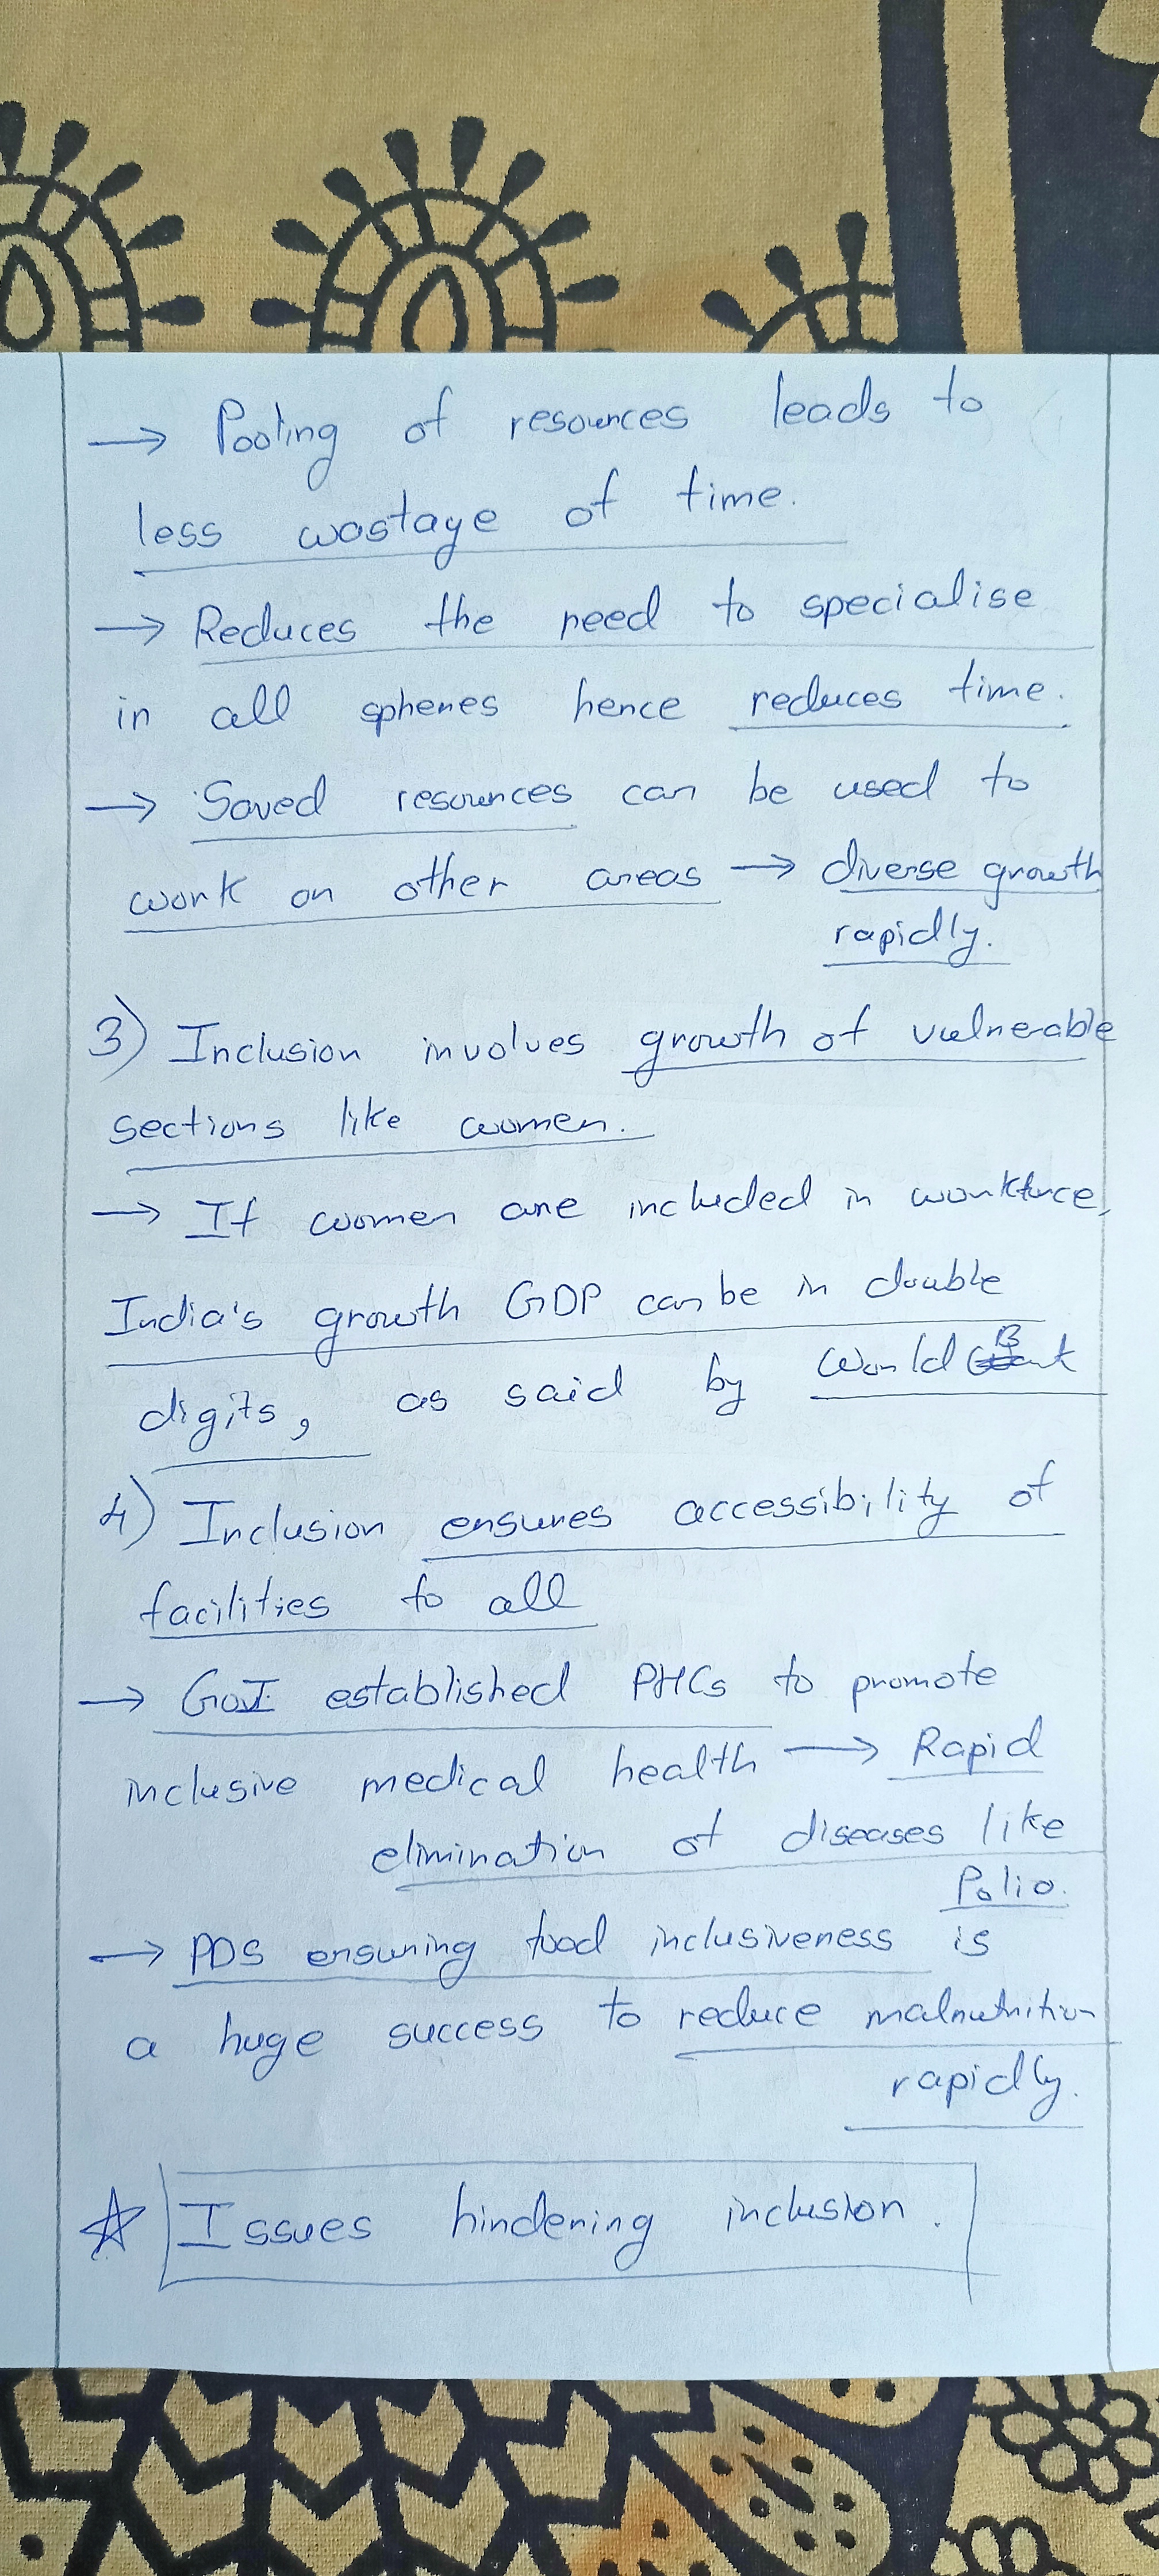 → Pooling of resources leads to
less wastage of time.
→ Reduces the need to specialise
in all spheres hence reduces time.
→ Saved resources can be used to
work on other areas → diverse growth
rapidly.
3) Inclusion involves growth of vulnerable
sections like women.
→ If women are included in workforce,
India's growth GDP can be in double
digits, as said by World Bank
4) Inclusion ensures accessibility of
facilities to all
→ GoI established PHCs to promote
inclusive medical health → Rapid
elimination of diseases like
Polio.
→ PDS ensuring food inclusiveness is
a huge success to reduce malnutrition
rapidly.
☆ Issues hindering inclusion.